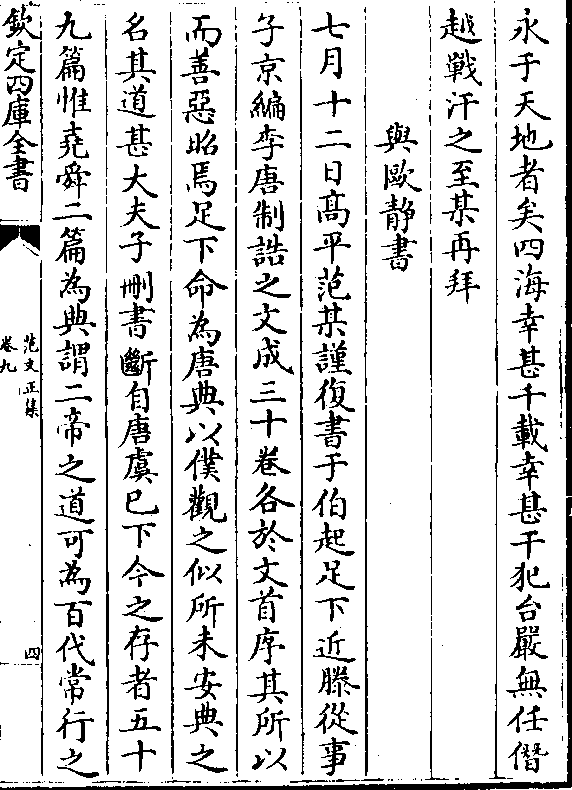 永于天地者矣四海幸甚千載幸甚干犯台嚴無任僭
越戰汗之至某再拜
與歐静書
七月十二日髙平范某謹復書于伯起足下近滕從事
子京編李唐制誥之文成三十卷各於文首序其所以
而善惡昭焉足下命為唐典以僕觀之似所未安典之
名其道甚大夫子刪書斷自唐虞已下今之存者五十
九篇惟堯舜二篇為典謂二帝之道可為百代常行之
欽定四庫全書
范文正集
卷九
四